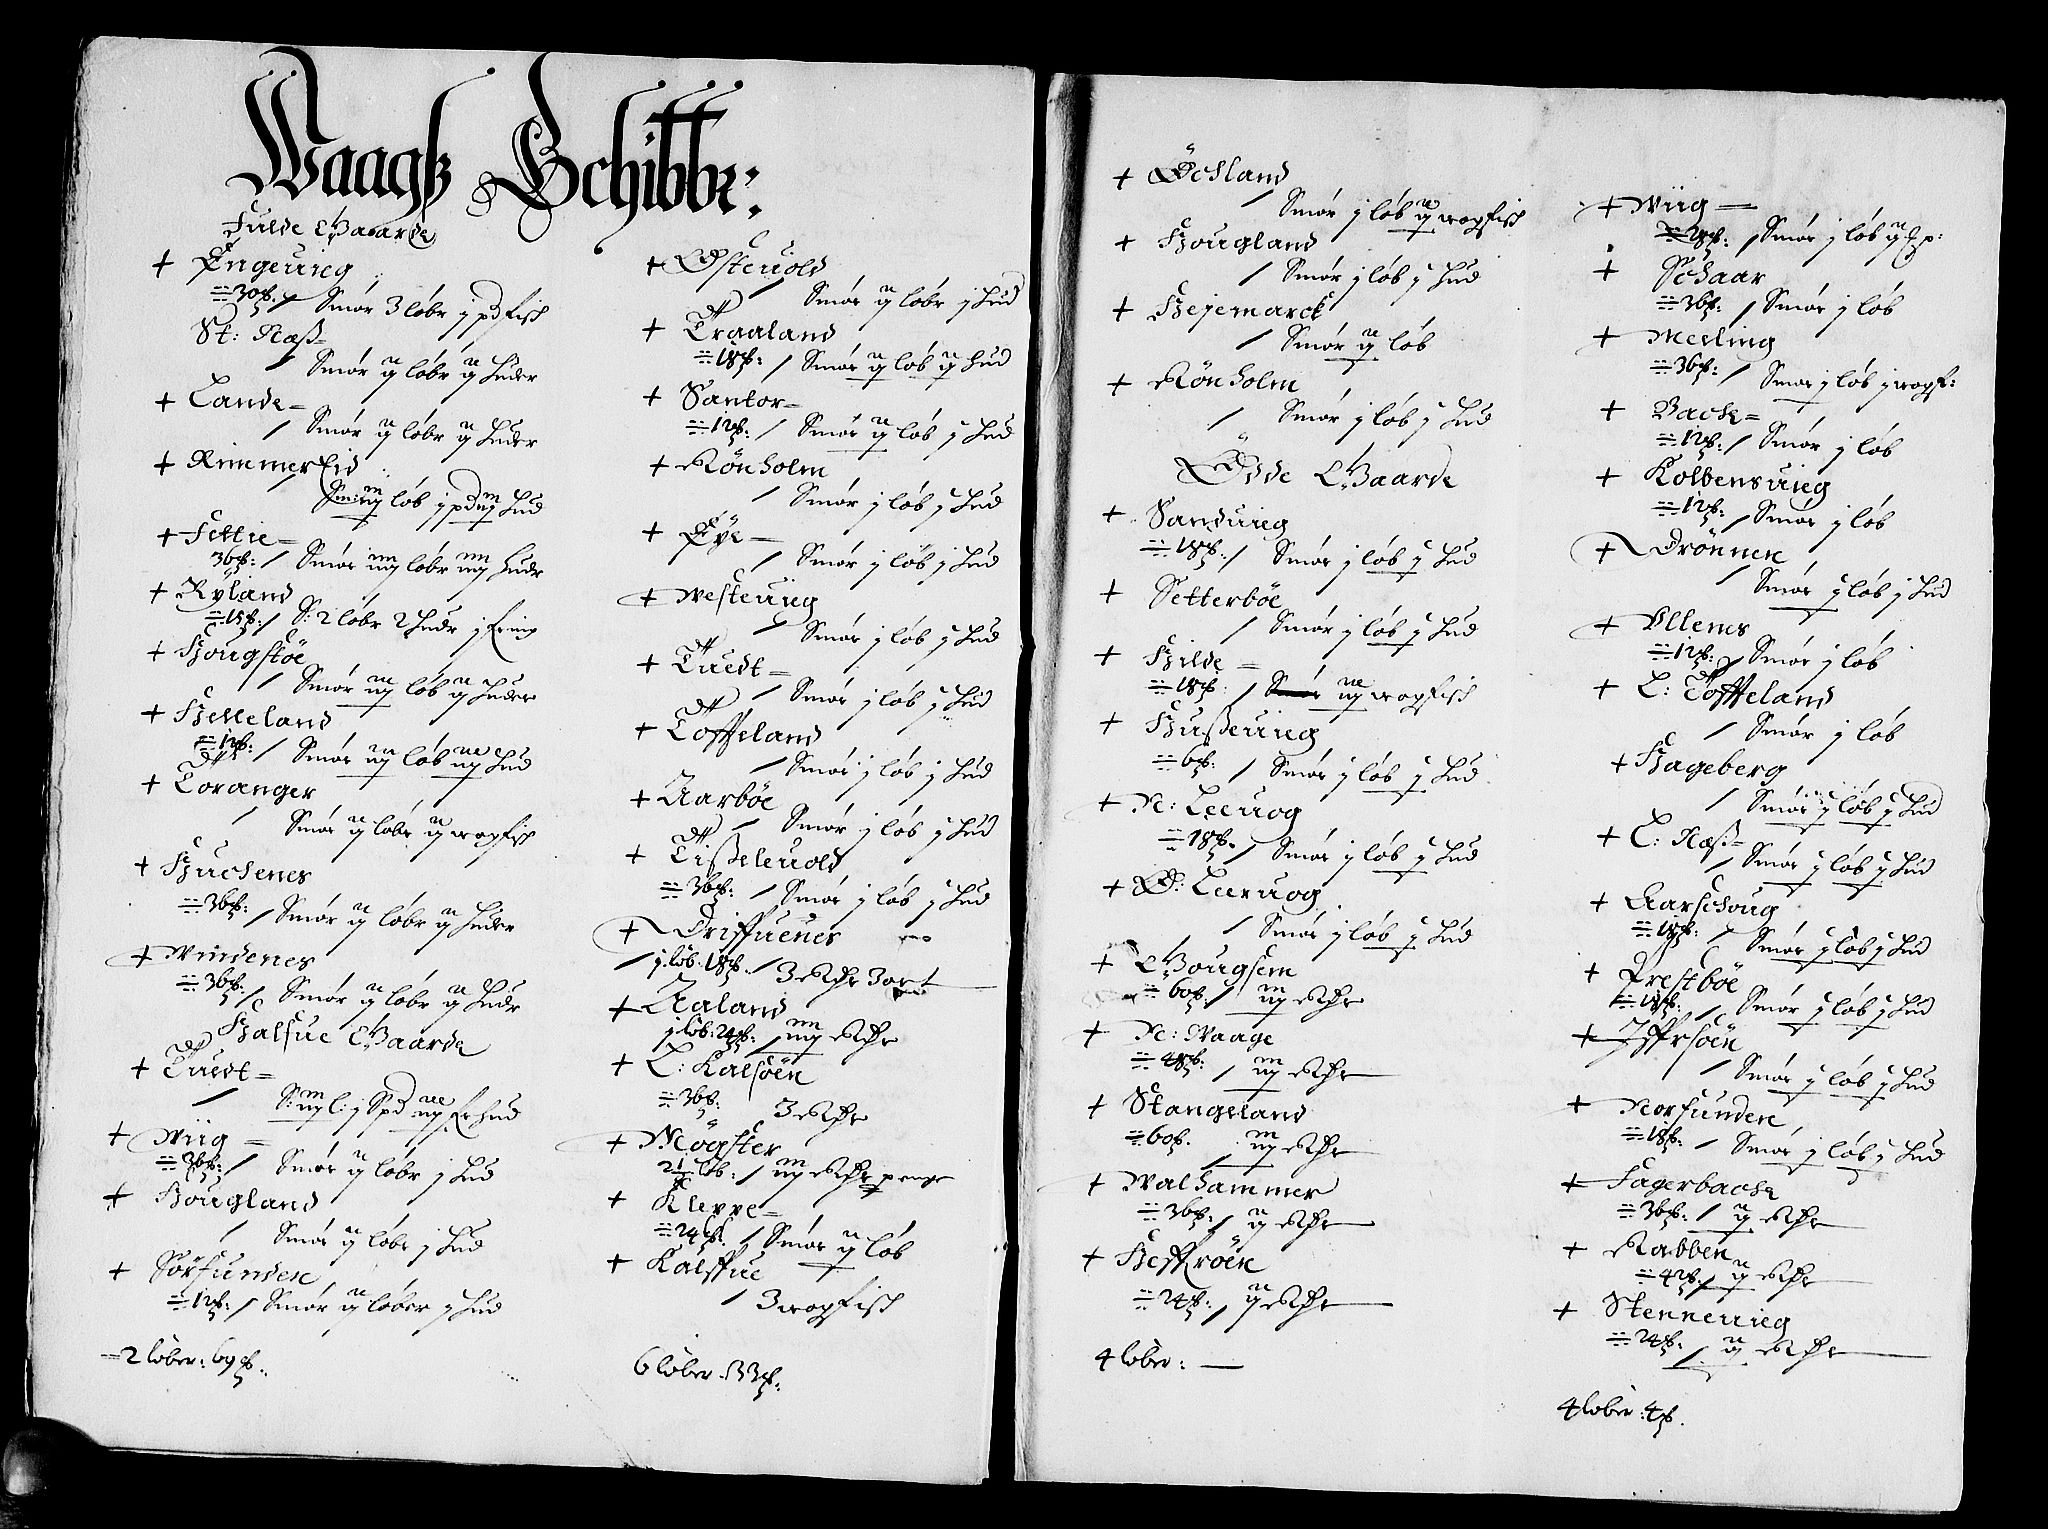 Waagß Schibbr:
Fulde Gaarde
+ Engeuieg
30 / Smør 3 løbr j pd fisch
St: Næß
/ Smør ij løbr ij huder
+ Lande
/ Smør ij løbr ij huder
+ Rimmerēid
Sm: iij løb j pd iij hud
+ Fettie
36 / Smør iiij løbr iiij hudr
+ Ryland
18 / S: 2 løbr 2 hudr j
+ Hougstøe
/ Smør iij løb ij huder
+ Helleland
12 / Smør iij løb iij hud
+ Toranger
/ Smør ij løbr ij wogfisch
+ Huchenes
36 / Smør ij løbr ij huder
+ Windenes
36 / Smør ij løbr ij hudr
Halfue Gaarde
+ Tuedt
/ S: iij l: j Spd iij hud
+ Wiig
36 / Smør ij løbr j hud
+ Hougland
/ Smør ij løbr j hud
+ Sørfunden
12 / Smør ij løber j hud
2 løber: 69
+ Østeuold
/ Smør ij løbr j hud
+ Traaland
18 / Smør ij løb ij hud
+ Santor
12 / Smør ij løb j hud
+ Rönholm
/ Smør j løb j hud
+ Eye
/ Smør j løb j hud
+ Westeuieg
/ Smør j løb j hud
+ Tuedt
/ Smør j løb j hud
+ Toffteland
/ Smør j løb j hud
+ Aarbøe
/ Smør j løb j hud
+ Tißeleuold
36 / Smør j løb j hud
+ Driffuenes
/ j løb: 18 / 3 Rdr 3 ort
+ Aaland
j løb: 24 / iiij Rdr
+ L: Kalsøen
36 3 Rdr
+ Møgster
2½ løb: / iij Rdr penge
+ Kleppe
24 / Smør ij løb
+ Kalffue
/ 3 wogfisch
6 løber 33
+ Øchland
/ Smør j løb ij wogfisch
+ Hougland
/ Smør j løb j hud
+ Hejemarck
/ Smør ij løb
+ Rönholm
/ Smør j løb j hud
Ödde Gaarde
+ Sanduieg
18 / Smør j løb j hud
+ Setterbøe
/ Smør j løb j hud
+ Hilde
18 / iij wogfisch
+ Hußeuieg
6 / Smør j løb j hud
+ N: Leeuog
18 / Smør j løb j hud
+ Ø: Leeruog
/ Smør j løb j hud
+ Gougsem
60 / iij Rdr
+ N: Waage
48 / iij Rdr
+ Stangeland
60 iij Rdr
+ Walhammer
36 / ij Rdr
+ Heffröen
24 / ij Rdr
4 løber:
+ Wiig
/ Smør j løb
+ Schaar
36 / Smør j løb
+ Meling
36 / Smør j løb j wogf:
+ Bache
12 / Smør j løb
+ Kolbensuieg
12 / Smør j løb
+ Drönnen
/ Smør j løb j hud
+ Ellenes
12 / Smør j løb
+ L: Toffteland
/ Smør j løb
+ Hageberg
/ Smør j løb j hud
+ L: Næß
/ Smør j løb j hud
+ Aarschoug
18 / Smør j løb j hud
+ Prestbøe
18 / Smør j løb j hud
+ Iffersøen
/ Smør j løb j hud
+ Norfunden
18 / Smør j løb j hud
+ Fagerbache
36 / ij Rdr
+ Rabben
42 / ij Rdr
+ Stenneuieg
24 / ij Rdr
4 løber: 4